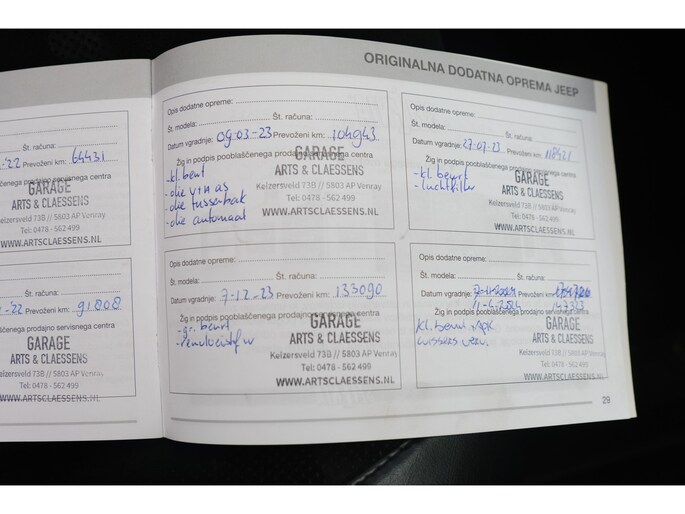 ORIGINALNA DODATNA OPREMA JEEP
-'22 Prevoženi km: 64431
GARAGE
ARTS & CLAESSENS
Keizersveld 73B // 5803 AP Venray
Tel: 0478 - 562 499
WWW.ARTSCLAESSENS.NL
-'22 Prevoženi km: 91808
prodajno servisnega centra
GARAGE
ARTS & CLAESSENS
Keizersveld 73B // 5803 AP Venray
Tel: 0478 - 562 499
WWW.ARTSCLAESSENS.NL
Opis dodatne opreme:
Št. modela: Št. računa:
Datum vgradnje: 09-03-23 Prevoženi km: 104943
Žig in podpis pooblaščenega prodajno servisnega centra
GARAGE
ARTS & CLAESSENS
Keizersveld 73B // 5803 AP Venray
Tel: 0478 - 562 499
WWW.ARTSCLAESSENS.NL
- kl. beurt
- olie v+n as
- olie tussenbak
- olie automaat
Opis dodatne opreme:
Št. modela: Št. računa:
Datum vgradnje: 27-07-23 Prevoženi km:
Žig in podpis pooblaščenega prodajno servisnega centra
GARAGE
ARTS & CLAESSENS
Keizersveld 73B // 5803 AP Venray
Tel: 0478 - 562 499
WWW.ARTSCLAESSENS.NL
- kl. beurt
- luchtfilter
Opis dodatne opreme:
Št. modela: Št. računa:
Datum vgradnje: 7-12-23 Prevoženi km: 133090
Žig in podpis pooblaščenega prodajno servisnega centra
GARAGE
ARTS & CLAESSENS
Keizersveld 73B // 5803 AP Venray
Tel: 0478 - 562 499
WWW.ARTSCLAESSENS.NL
- gr. beurt
- Remvloeistof
Opis dodatne opreme:
Št. modela: Št. računa:
Datum vgradnje: Prevoženi km:
Žig in podpis pooblaščenega prodajno servisnega centra
GARAGE
ARTS & CLAESSENS
Keizersveld 73B // 5803 AP Venray
Tel: 0478 - 562 499
WWW.ARTSCLAESSENS.NL
kl. beurt + APK
29